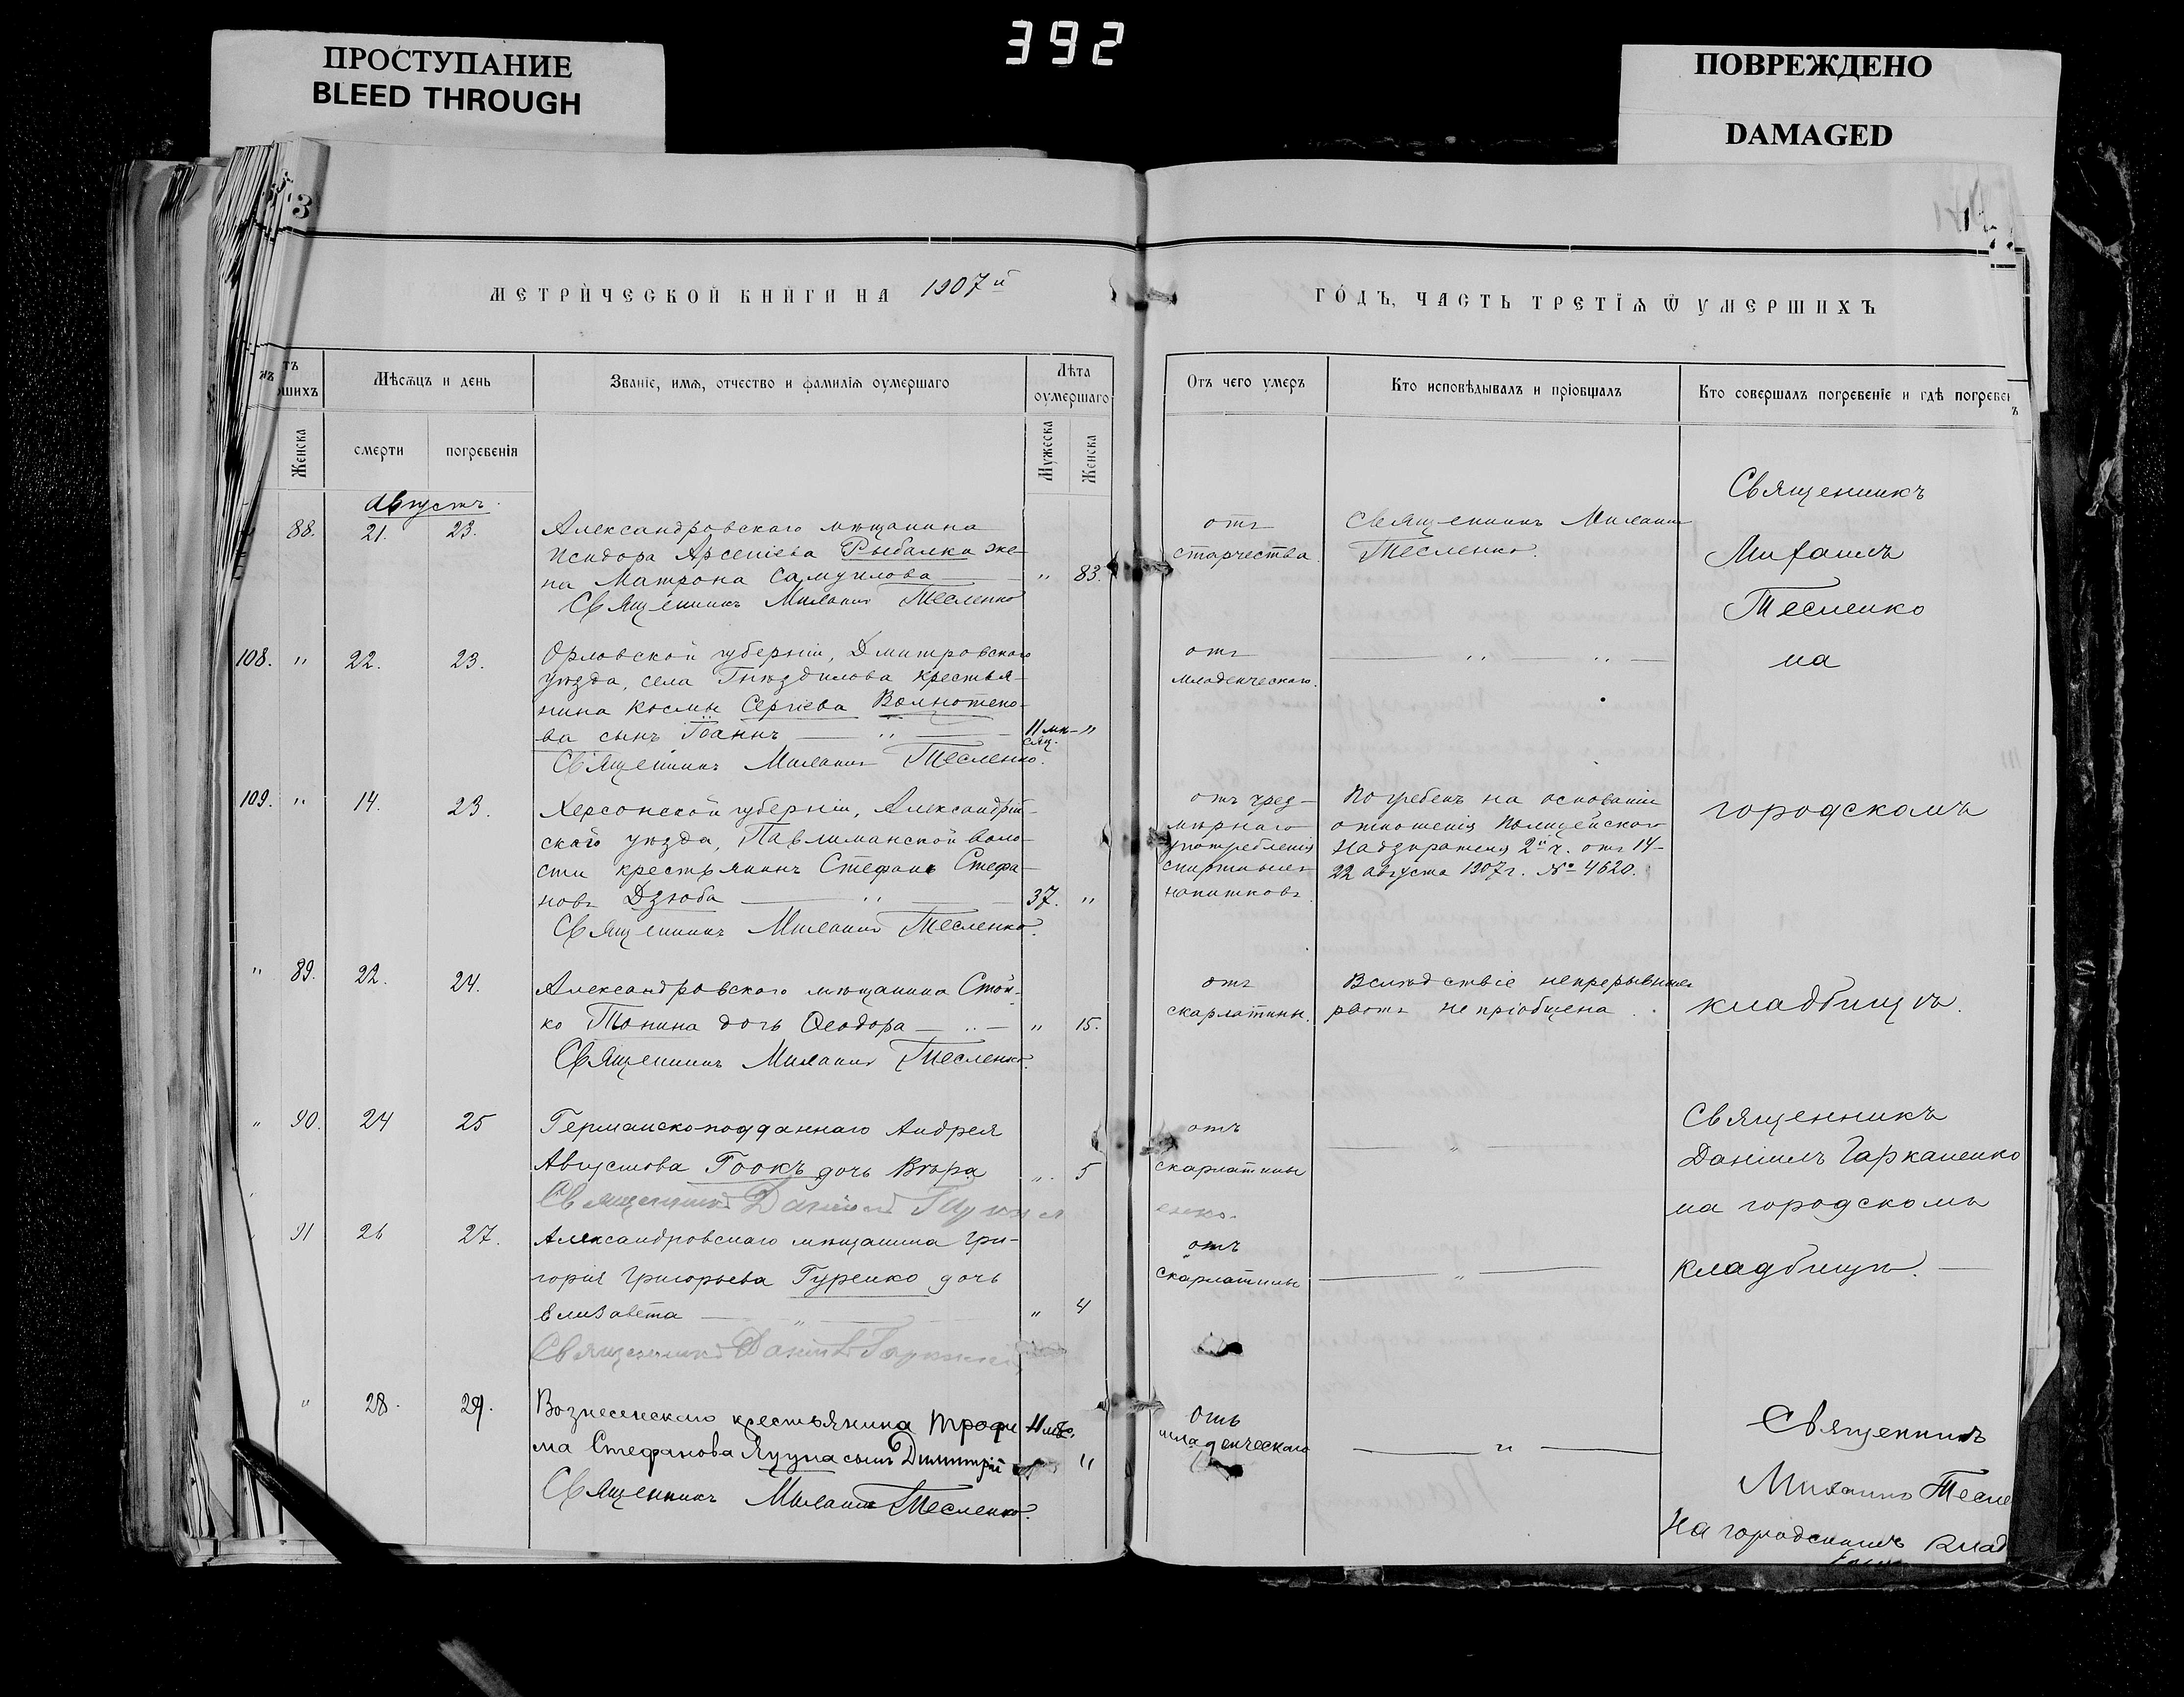 392
ПРОСТУПАНИЕ
BLEED THROUGH
ПОВРЕЖДЕНО
DAMAGED
МЕТРИ́ЧЕСКОЙ КНИ́ГИ НА 1907й
ГО́ДЪ, ЧАСТЬ ТРЕТІѦ Ѿ УМЕРШИХЪ
Мѣсѧцъ и день
Званіе, имѧ, отчество и фамиліѧ оумершаго
Лѣта
оумершаго
Женска
смерти
погребенія
Мужеска
Женска
Отъ чего умеръ
Кто исповѣдывалъ и пріобщалъ
Кто совершалъ погребеніе и гдѣ погребен
Августъ.
88. 21. 23.
Александровскаго мѣщанина
Исидора Арсеніева Рыбалка же-
на Матрона Самуилова
" 83.
Священникъ Михаилъ Тесленко
отъ
старчества.
Священникъ Михаилъ
Тесленко.
Священникъ
Михаилъ
Тесленко
на
108. " 22. 23.
Орловской губерніи, Дмитровскаго
уѣзда, села Гнѣздилова крестья-
нина Космы Сергіева
ва сынъ Іоаннъ — " —
11 мѣ- "
сяц.
Священникъ Михаилъ Тесленко.
отъ
младенческаго.
— " — " —
109. " 14. 23.
Херсонской губерніи, Александрій-
скаго уѣзда, Павлишанской воло-
сти крестьянинъ Стефанъ Стефа-
новъ Дзюба — " —
37. "
Священникъ Михаилъ Тесленко.
отъ чрез-
мѣрнаго
употребленія
спиртныхъ
напитковъ
Погребенъ на основаніи
отношенія Полицейскаго
Надзирателя 2й ч. отъ 14-
22 августа 1907 г. № 4620.
городскомъ
" 89. 22. 24.
Александровскаго мѣщанина Стой-
ко Тонина дочь Ѳеодора — " —
" 15.
Священникъ Михаилъ Тесленко.
отъ
скарлатины.
Вслѣдствіе непрерывныхъ
рвотъ не пріобщена
кладбищѣ.
" 90. 24 25
Германско-подданнаго Андрея
Августова Гоокъ дочь Вѣра
" 5
Священникъ Даніилъ
отъ
скарлатины
— " —
Священникъ
Даніилъ Гаркаленко
на городскомъ
кладбищѣ. —
91 26 27.
Александровскаго мѣщанина Гри-
горія Григорьева Гуренко дочь
Елизавета — " —
" 4
Священникъ Даніилъ
отъ
скарлатины
— " —
" 28. 29.
Вознесенскаго крестьянина Трофи
ма Стефанова сынъ Димитрій
11 мѣс.
"
Священникъ Михаилъ Тесленко.
Отъ
младенческаго
— " —
Священникъ
Михаилъ Тесле
На городскомъ клад